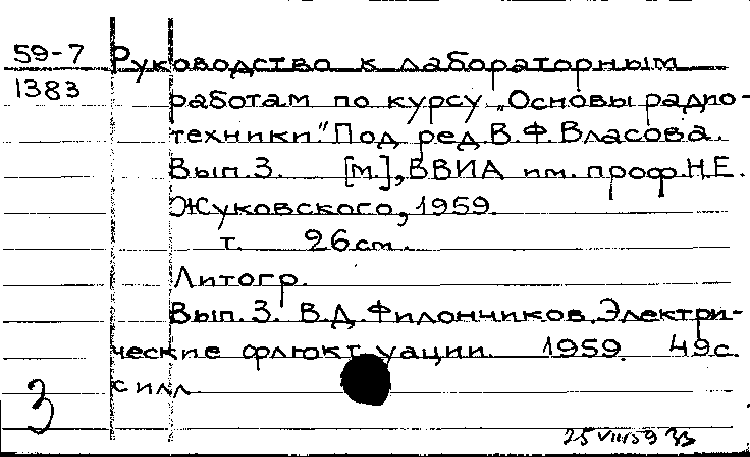 59-7 Руководство к лабораторным
1383 работам по курсу „Основы радио-
техники." Под ред. В.Ф. Власова.
Вып. 3. [М.], ВВИА им. проф. Н.Е.
Жуковского, 1959.
т. 26 см.
Литогр.
Вып. 3. В.Д. Филончиков. Электри-
ческие флюктуации. 1959. 49 с.
с илл.
3
25 VIII 59